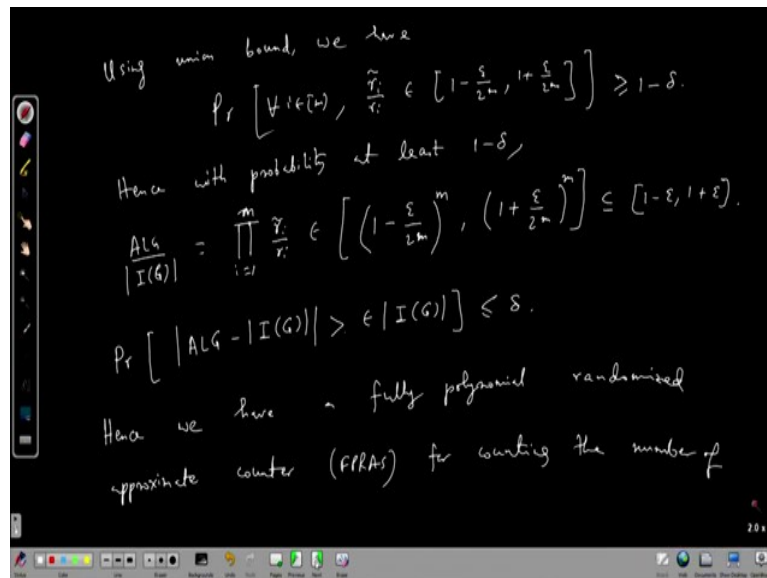 Using union bound, we have
Pr [ ∀ i ∈ [m], r̃ᵢ/rᵢ ∈ [1 - ε/2m, 1 + ε/2m] ] ≥ 1 - δ.
Hence with probability at least 1-δ,
ALG/|I(G)| = ∏ᵢ₌₁ᵐ r̃ᵢ/rᵢ ∈ [ (1 - ε/2m)ᵐ, (1 + ε/2m)ᵐ ] ⊆ [1-ε, 1+ε].
Pr [ |ALG - |I(G)|| > ∈ |I(G)| ] ≤ δ.
Hence we have a fully polynomial randomized
approximate counter (FPRAS) for counting the number of
2.0 x